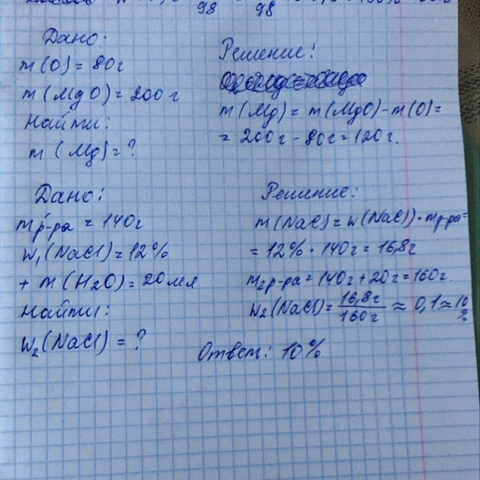 98 98
Дано:
m(O) = 80г
m(MgO) = 200 г
Найти:
m(Mg) = ?
Решение:
m(Mg) = m(MgO) - m(O) =
= 200г - 80г = 120г.
Дано:
mр-ра = 140г
w₁(NaCl) = 12%
+ m(H₂O) = 20мл
Найти:
w₂(NaCl) = ?
Решение:
m(NaCl) = w(NaCl) · mр-ра =
= 12% · 140г = 16,8г
m₂р-ра = 140г + 20г = 160г.
w₂(NaCl) = 16,8г / 160г ≈ 0,1 ≈ 10 %
Ответ: 10%